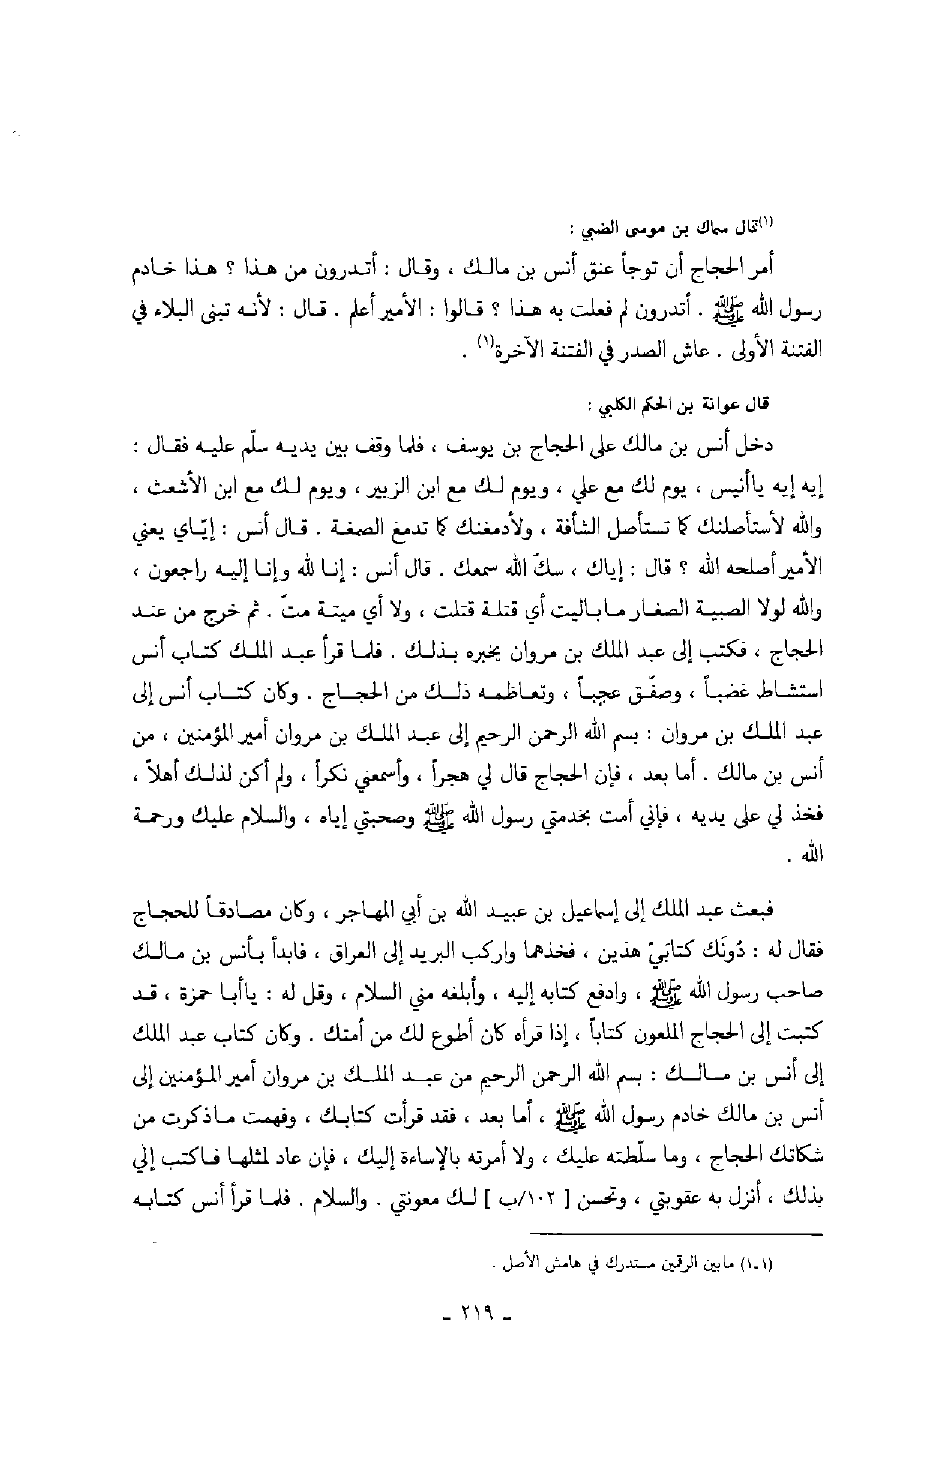 (١)قال سماك بن موسى الضبي :
أمر الحجاج أن توجأ عنق أنس بن مالك ، وقال : أتدرون من هذا ؟ هذا خادم
رسول الله ﷺ . أتدرون لم فعلت به هذا ؟ قالوا : الأمير أعلم . قال : لأنه تبنى البلاء في
الفتنة الأولى . عاش الصدر في الفتنة الآخرة(١) .
قال عوانة بن الحكم الكلبي :
دخل أنس بن مالك على الحجاج بن يوسف ، فلما وقف بين يديه سلّم عليه فقال :
إيه إيه ياأنيس ، يوم لك مع علي ، ويوم لك مع ابن الزبير ، ويوم لك مع ابن الأشعث ،
والله لأستأصلنك كا تستأصل الشأفة ، ولأدمغنك كا تدمغ الصمغة . قال أنس : إيّاي يعني
الأمير أصلحه الله ؟ قال : إياك ، سكّ الله سمعك . قال أنس : إنا لله وإنا إليه راجعون ،
والله لولا الصبية الصغار ماباليت أي قتلة قتلت ، ولا أي ميتة متّ . ثم خرج من عند
الحجاج ، فكتب إلى عبد الملك بن مروان يخبره بذلك . فلما قرأ عبد الملك كتاب أنس
استشاط غضباً ، وصفّق عجباً ، وتعاظمه ذلك من الحجاج . وكان كتاب أنس إلى
عبد الملك بن مروان : بسم الله الرحمن الرحيم إلى عبد الملك بن مروان أمير المؤمنين ، من
أنس بن مالك . أما بعد ، فإن الحجاج قال لي هجراً ، وأسمعني نكراً ، ولم أكن لذلك أهلاً ،
فخذ لي على يديه ، فإني أمت بخدمتي رسول الله ﷺ وصحبتي إياه ، والسلام عليك ورحمة
الله .
فبعث عبد الملك إلى إسماعيل بن عبيد الله بن أبي المهاجر ، وكان مصادقاً للحجاج
فقال له : دُونَك كتابَيّ هذين ، فخذهما واركب البريد إلى العراق ، فابدأ بأنس بن مالك
صاحب رسول الله ﷺ ، وادفع كتابه إليه ، وأبلغه مني السلام ، وقل له : ياأبا حمزة ، قد
كتبت إلى الحجاج الملعون كتاباً ، إذا قرأه كان أطوع لك من أمتك . وكان كتاب عبد الملك
إلى أنس بن مالك : بسم الله الرحمن الرحيم من عبد الملك بن مروان أمير المؤمنين إلى
أنس بن مالك خادم رسول الله ﷺ ، أما بعد ، فقد قرأت كتابك ، وفهمت ماذكرت من
شكاتك الحجاج ، وما سلّطته عليك ، ولا أمرته بالإساءة إليك ، فإن عاد لمثلها فاكتب إلي
بذلك ، أنزل به عقوبتي ، وتحسن [ ١٠٢/ب ] لك معونتي . والسلام . فلما قرأ أنس كتابه
(١-١) مابين الرقمين مستدرك في هامش الأصل .
- ٢١٩ -